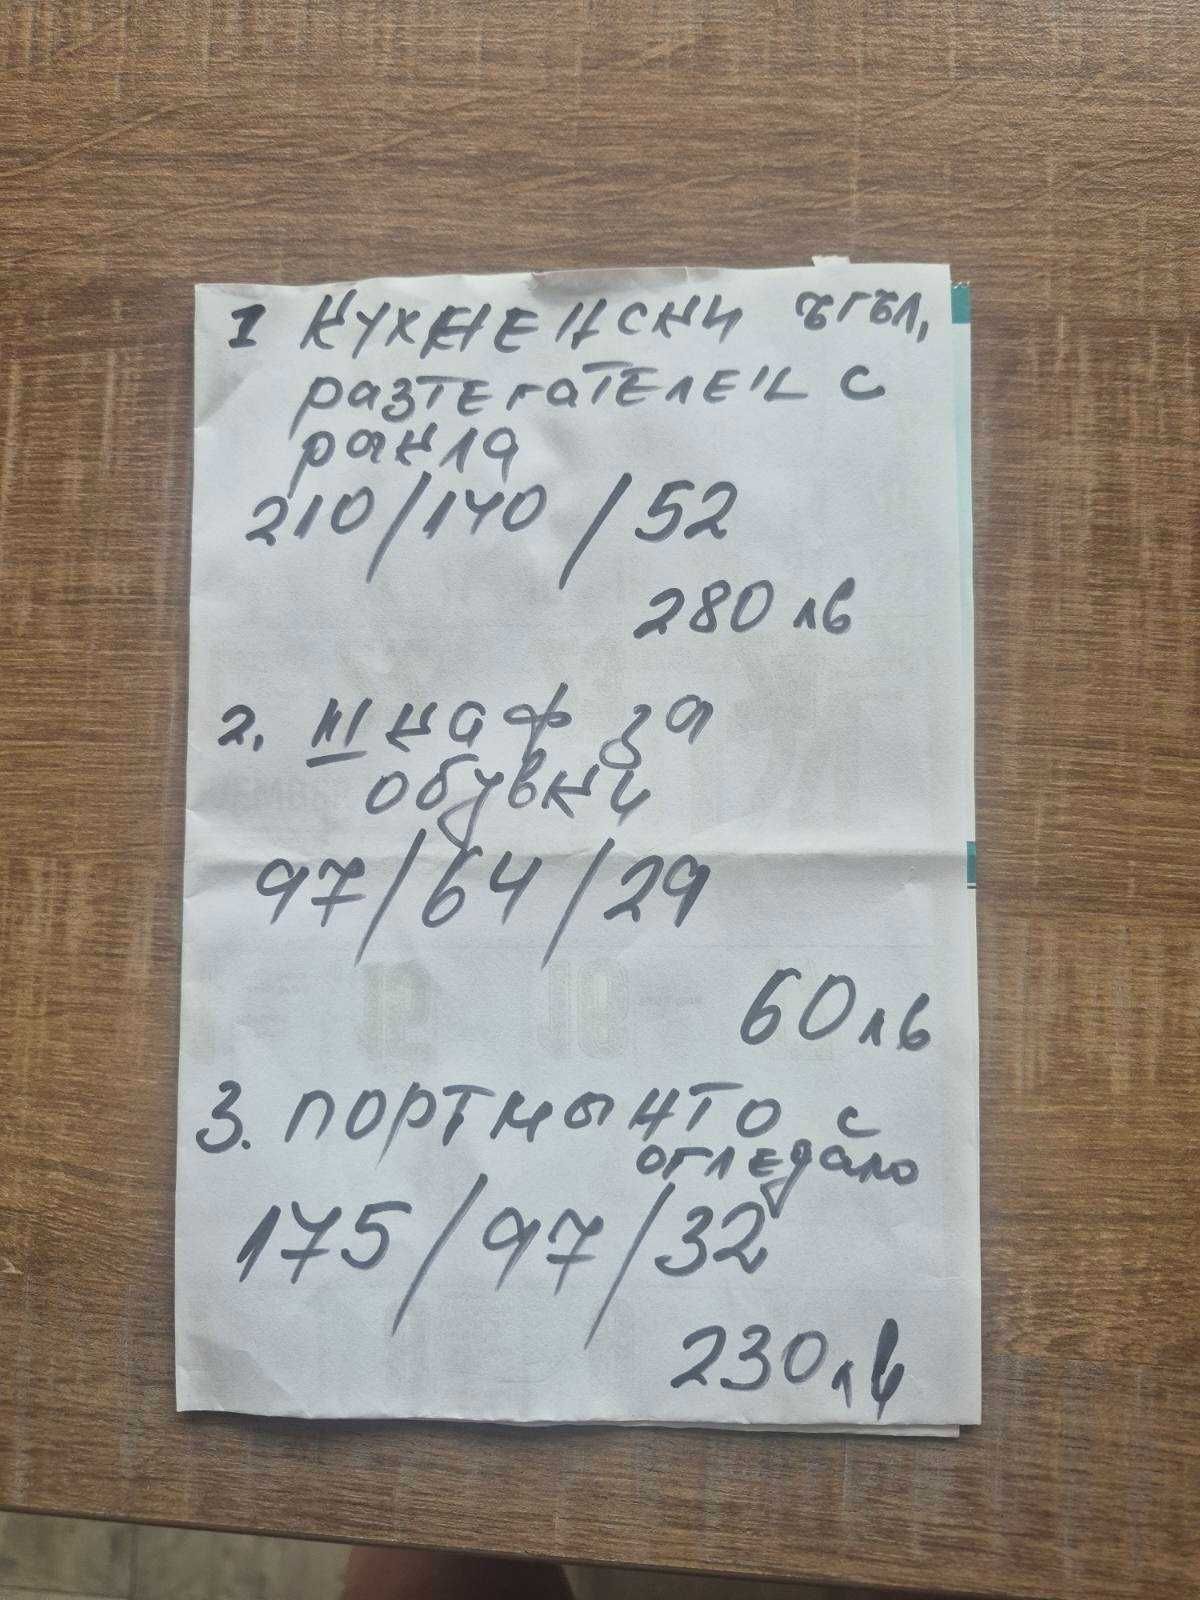 1 Кухненски ъгъл,
разтегателен с
ракла
210/140/52
280 лв
2. Шкаф за
обувки
97/64/29
60 лв
3. портманто с
огледало
175/97/32
230 лв